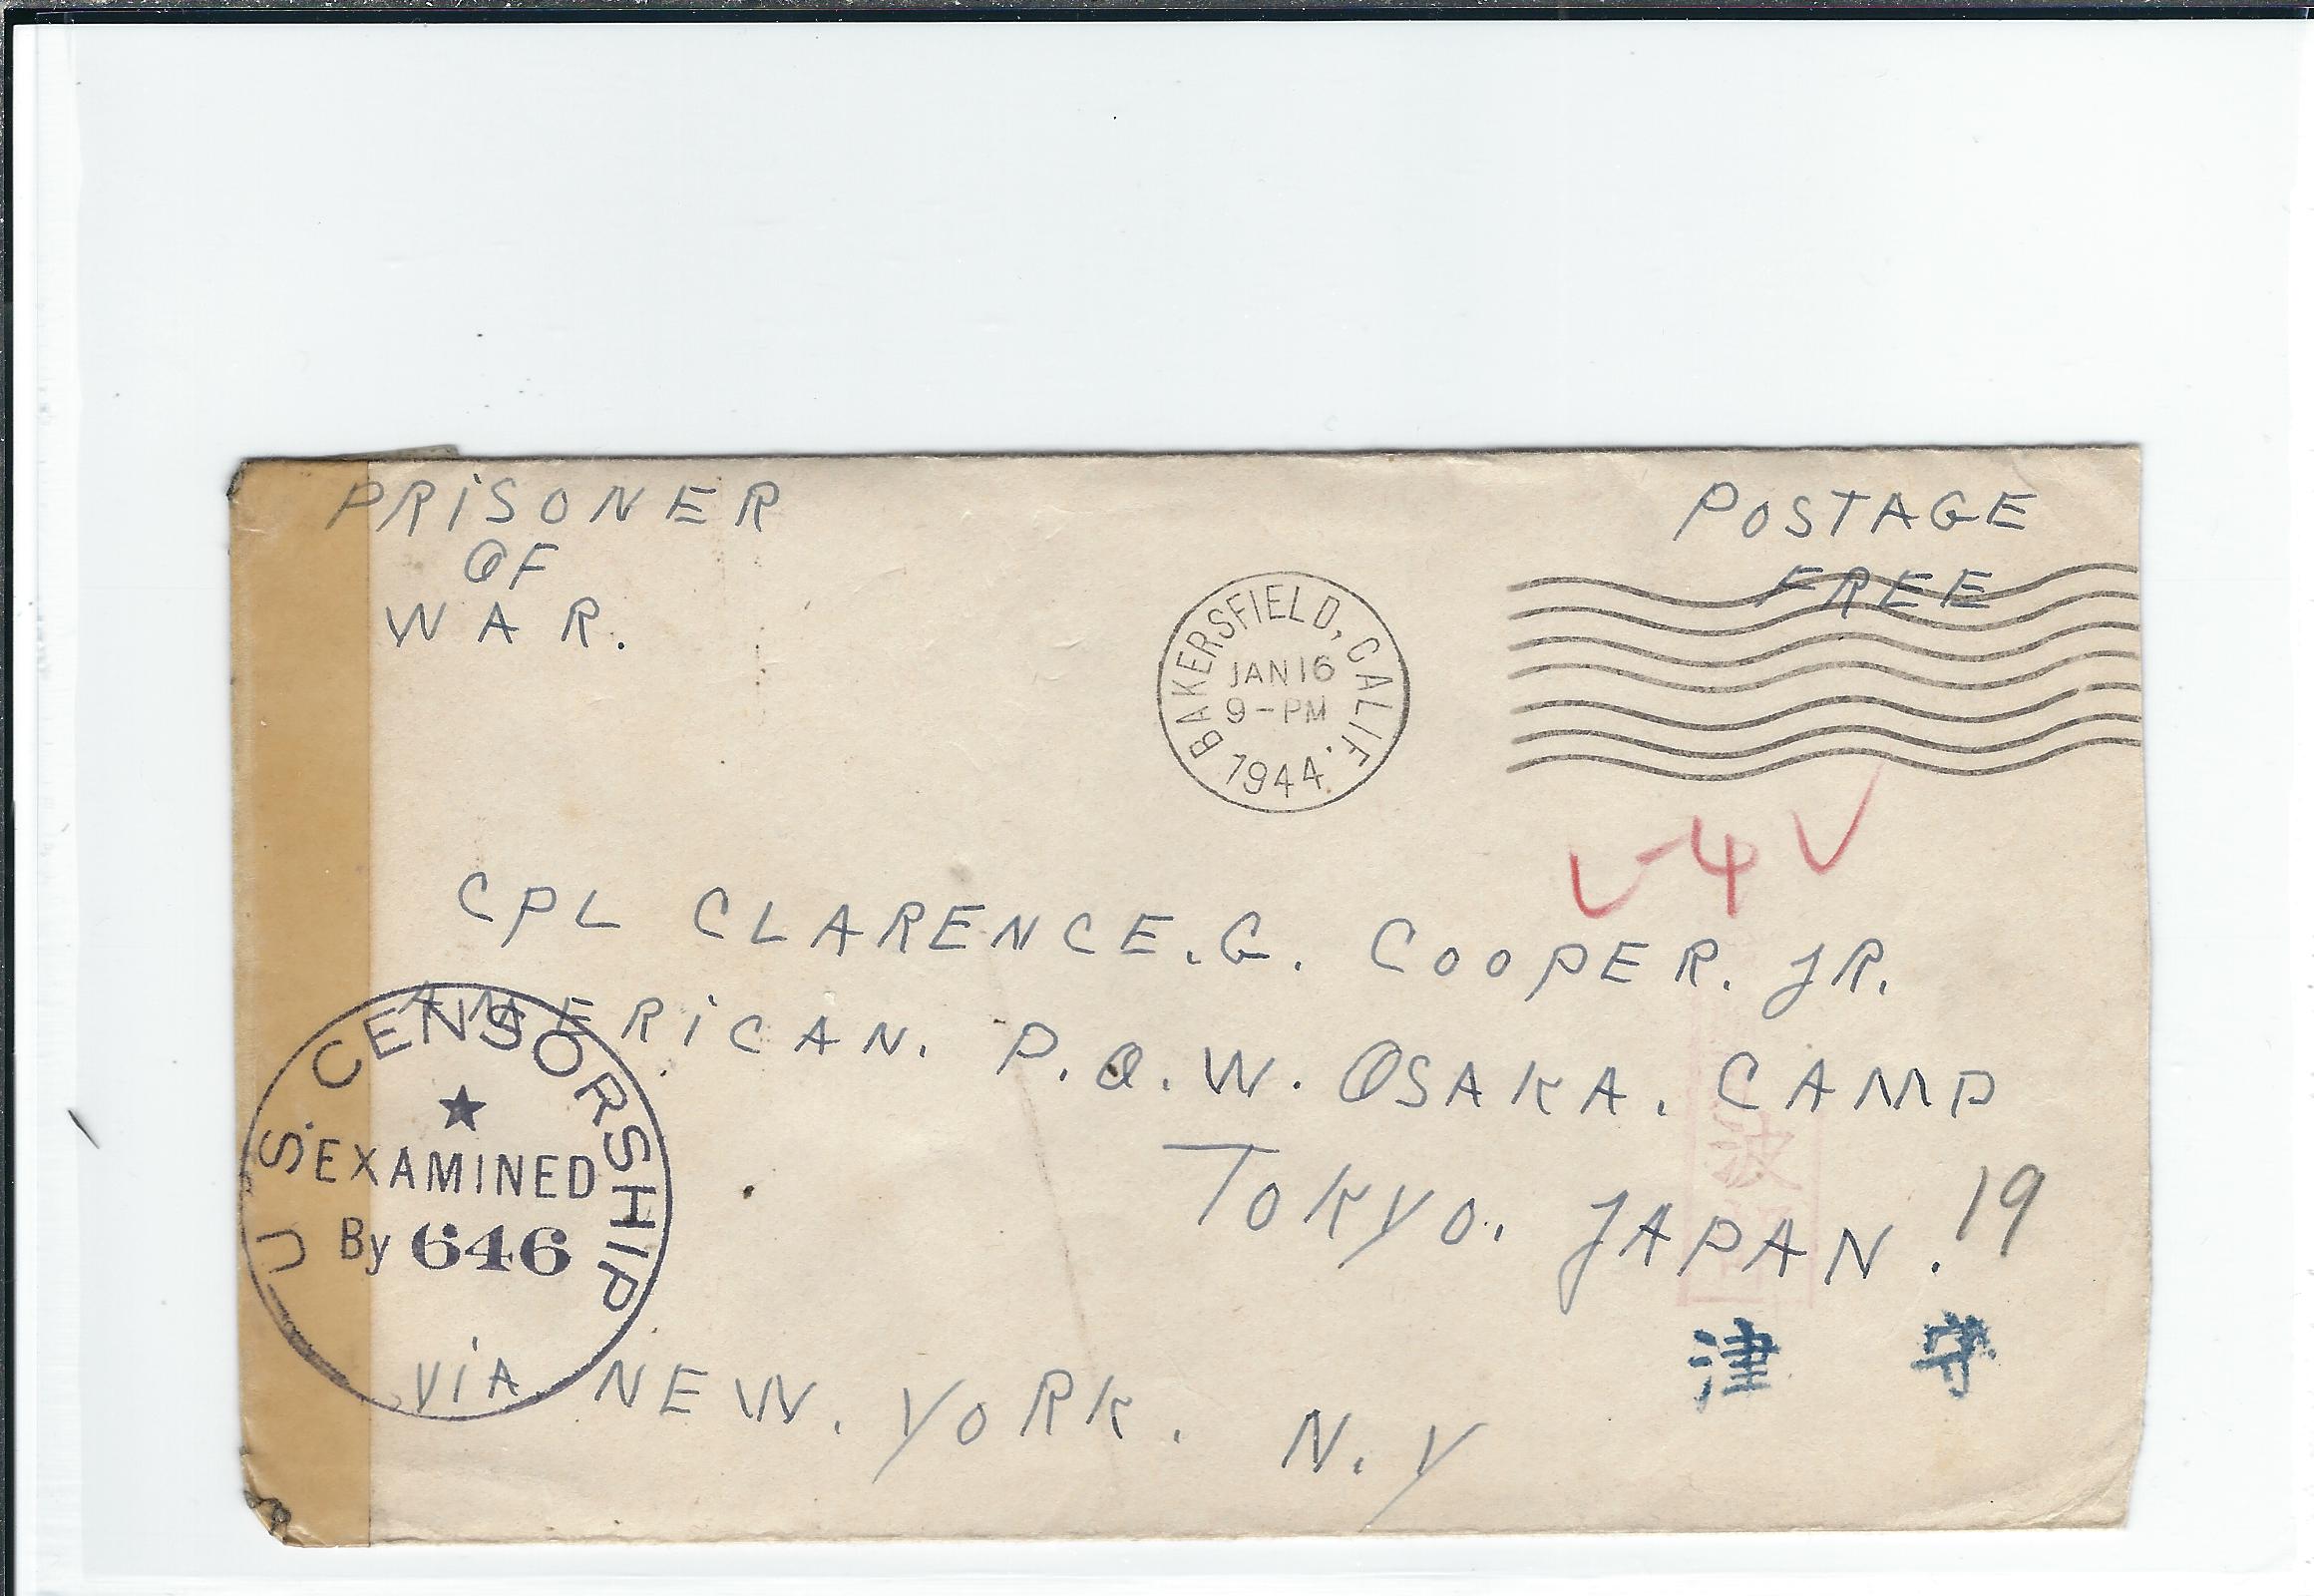 PRISONER
OF
WAR.
POSTAGE
FREE
BAKERSFIELD, CALIF.
JAN 16
9-PM
1944
4
CPL CLARENCE.G. COOPER. JR.
AMERICAN. P.O.W. OSAKA. CAMP
TOKYO. JAPAN.
19
U.S. CENSORSHIP
EXAMINED
By 646
津 守
VIA. NEW. YORK. N.Y